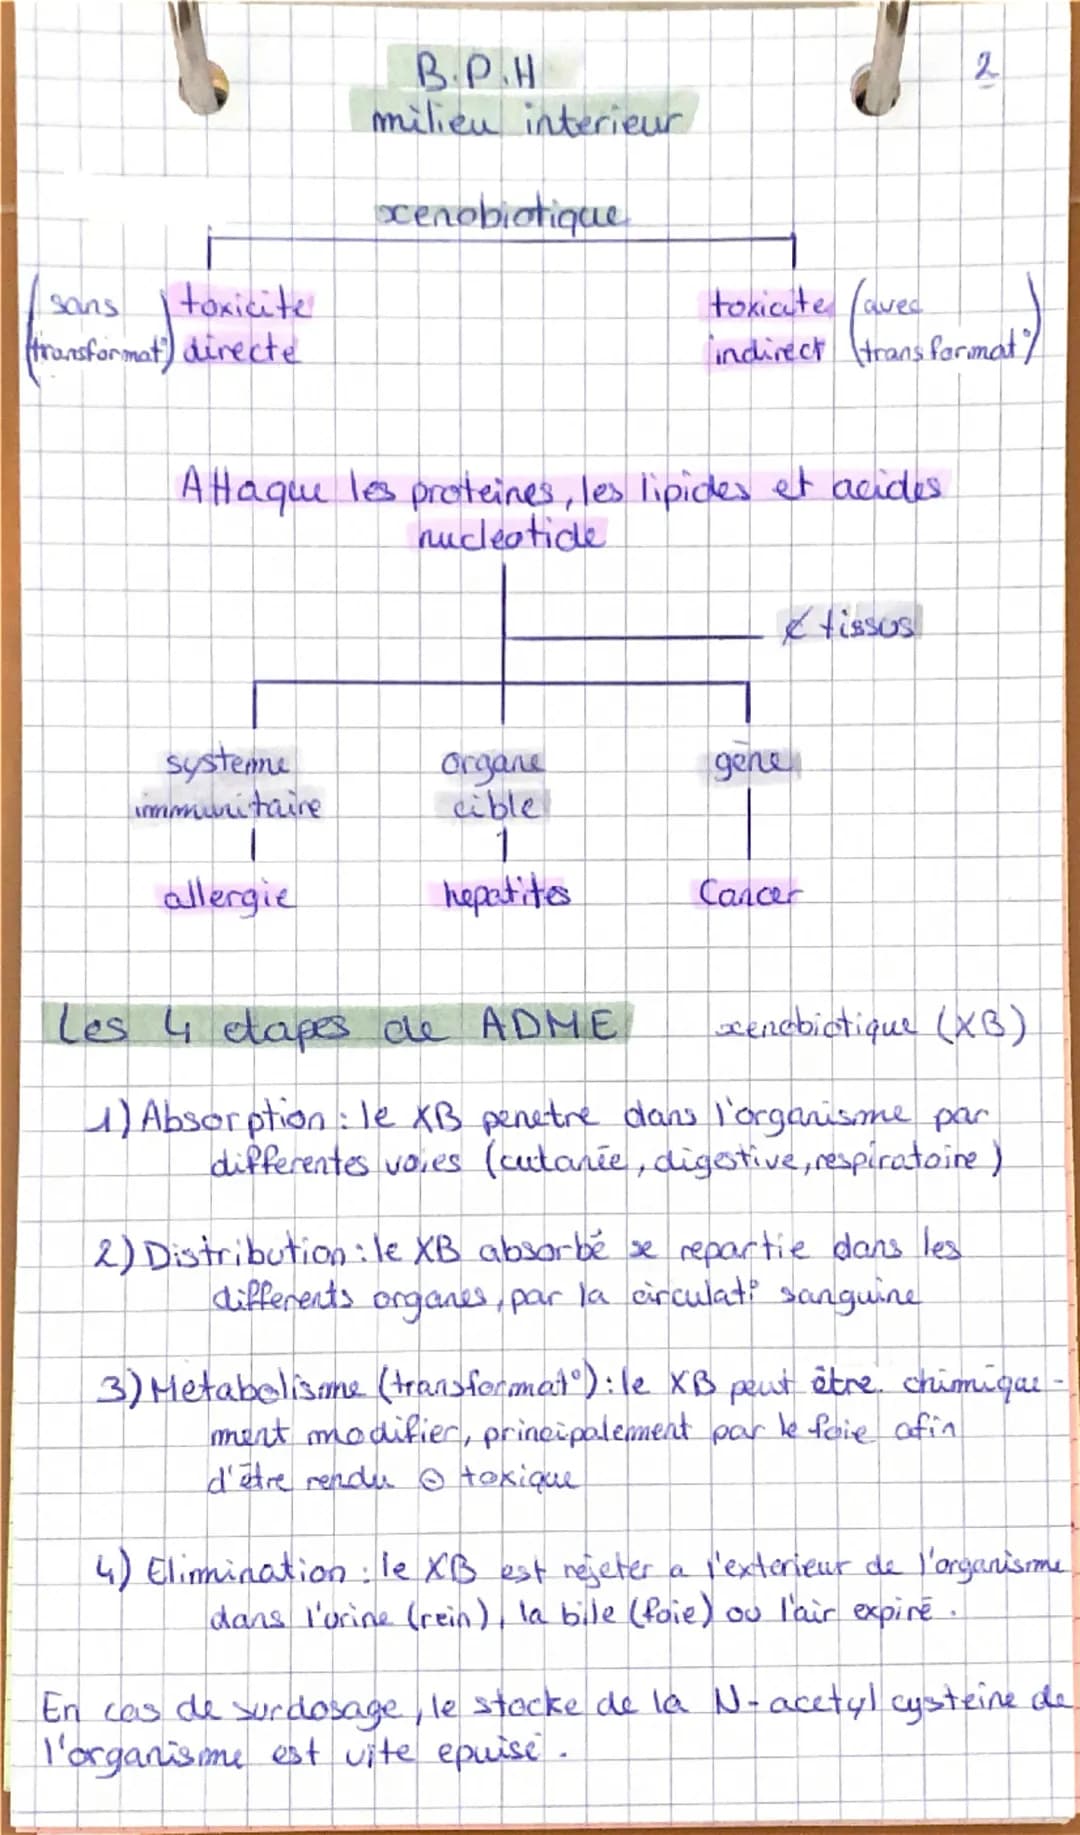 B.P.H
2
milieu interieur
xenobiotique
(sans transformat°) toxicite directe
toxicite indirect (avec transformat°)
Attaque les proteines, les lipides et acides
nucleotide
≠ tissus
systeme immunitaire
organe cible
gène
allergie
hepatites
Cancer
Les 4 etapes de ADME
xenobiotique (XB)
1) Absorption : le XB penetre dans l'organisme par
differentes voies (cutanée, digestive, respiratoire)
2) Distribution : le XB absorbé se repartie dans les
differents organes, par la circulat° sanguine
3) Metabolisme (transformat°) : le XB peut être chimique-
ment modifier, principalement par le foie afin
d'être rendu ⊖ toxique
4) Elimination : le XB est rejeter a l'exterieur de l'organisme
dans l'urine (rein), la bile (foie) ou l'air expiré.
En cas de surdosage, le stocke de la N-acetyl cysteine de
l'organisme est vite epuisé.